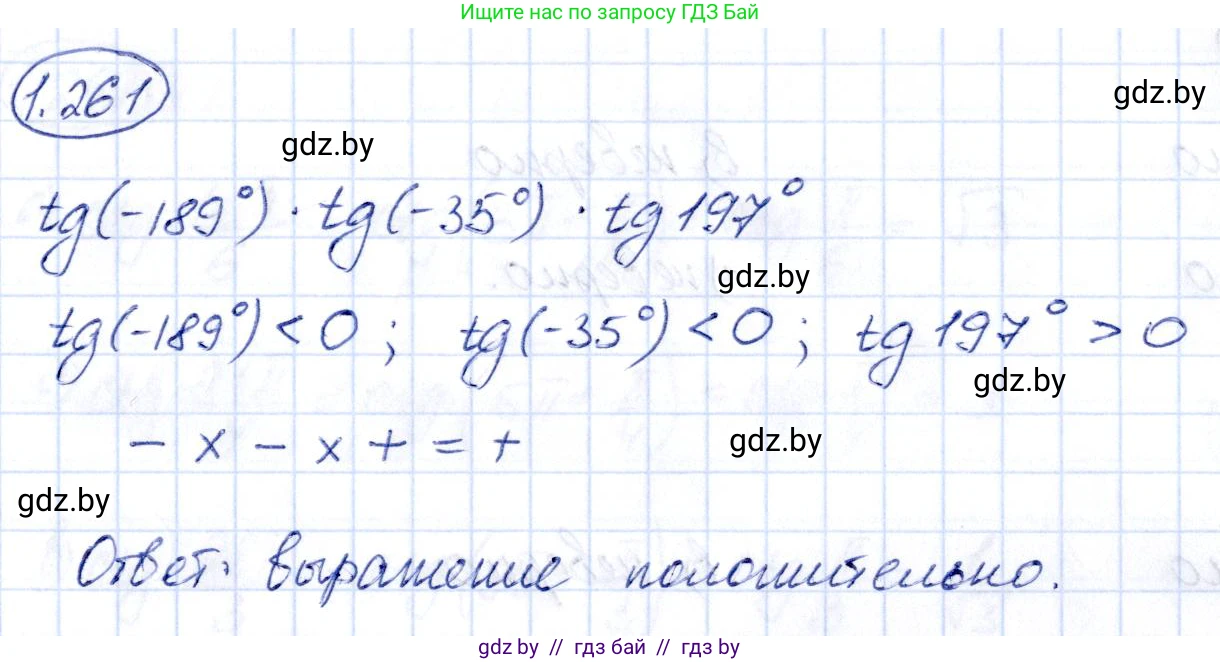 Ищите нас по запросу ГДЗ Бай
1.261
gdz.by
gdz.by
tg(-189°) · tg(-35°) · tg 197°
gdz.by
tg(-189°) < 0 ; tg(-35°) < 0 ; tg 197° > 0
gdz.by
- x - x + = +
gdz.by
gdz.by
Ответ: выражение положительно.
gdz.by // гдз бай // гдз by